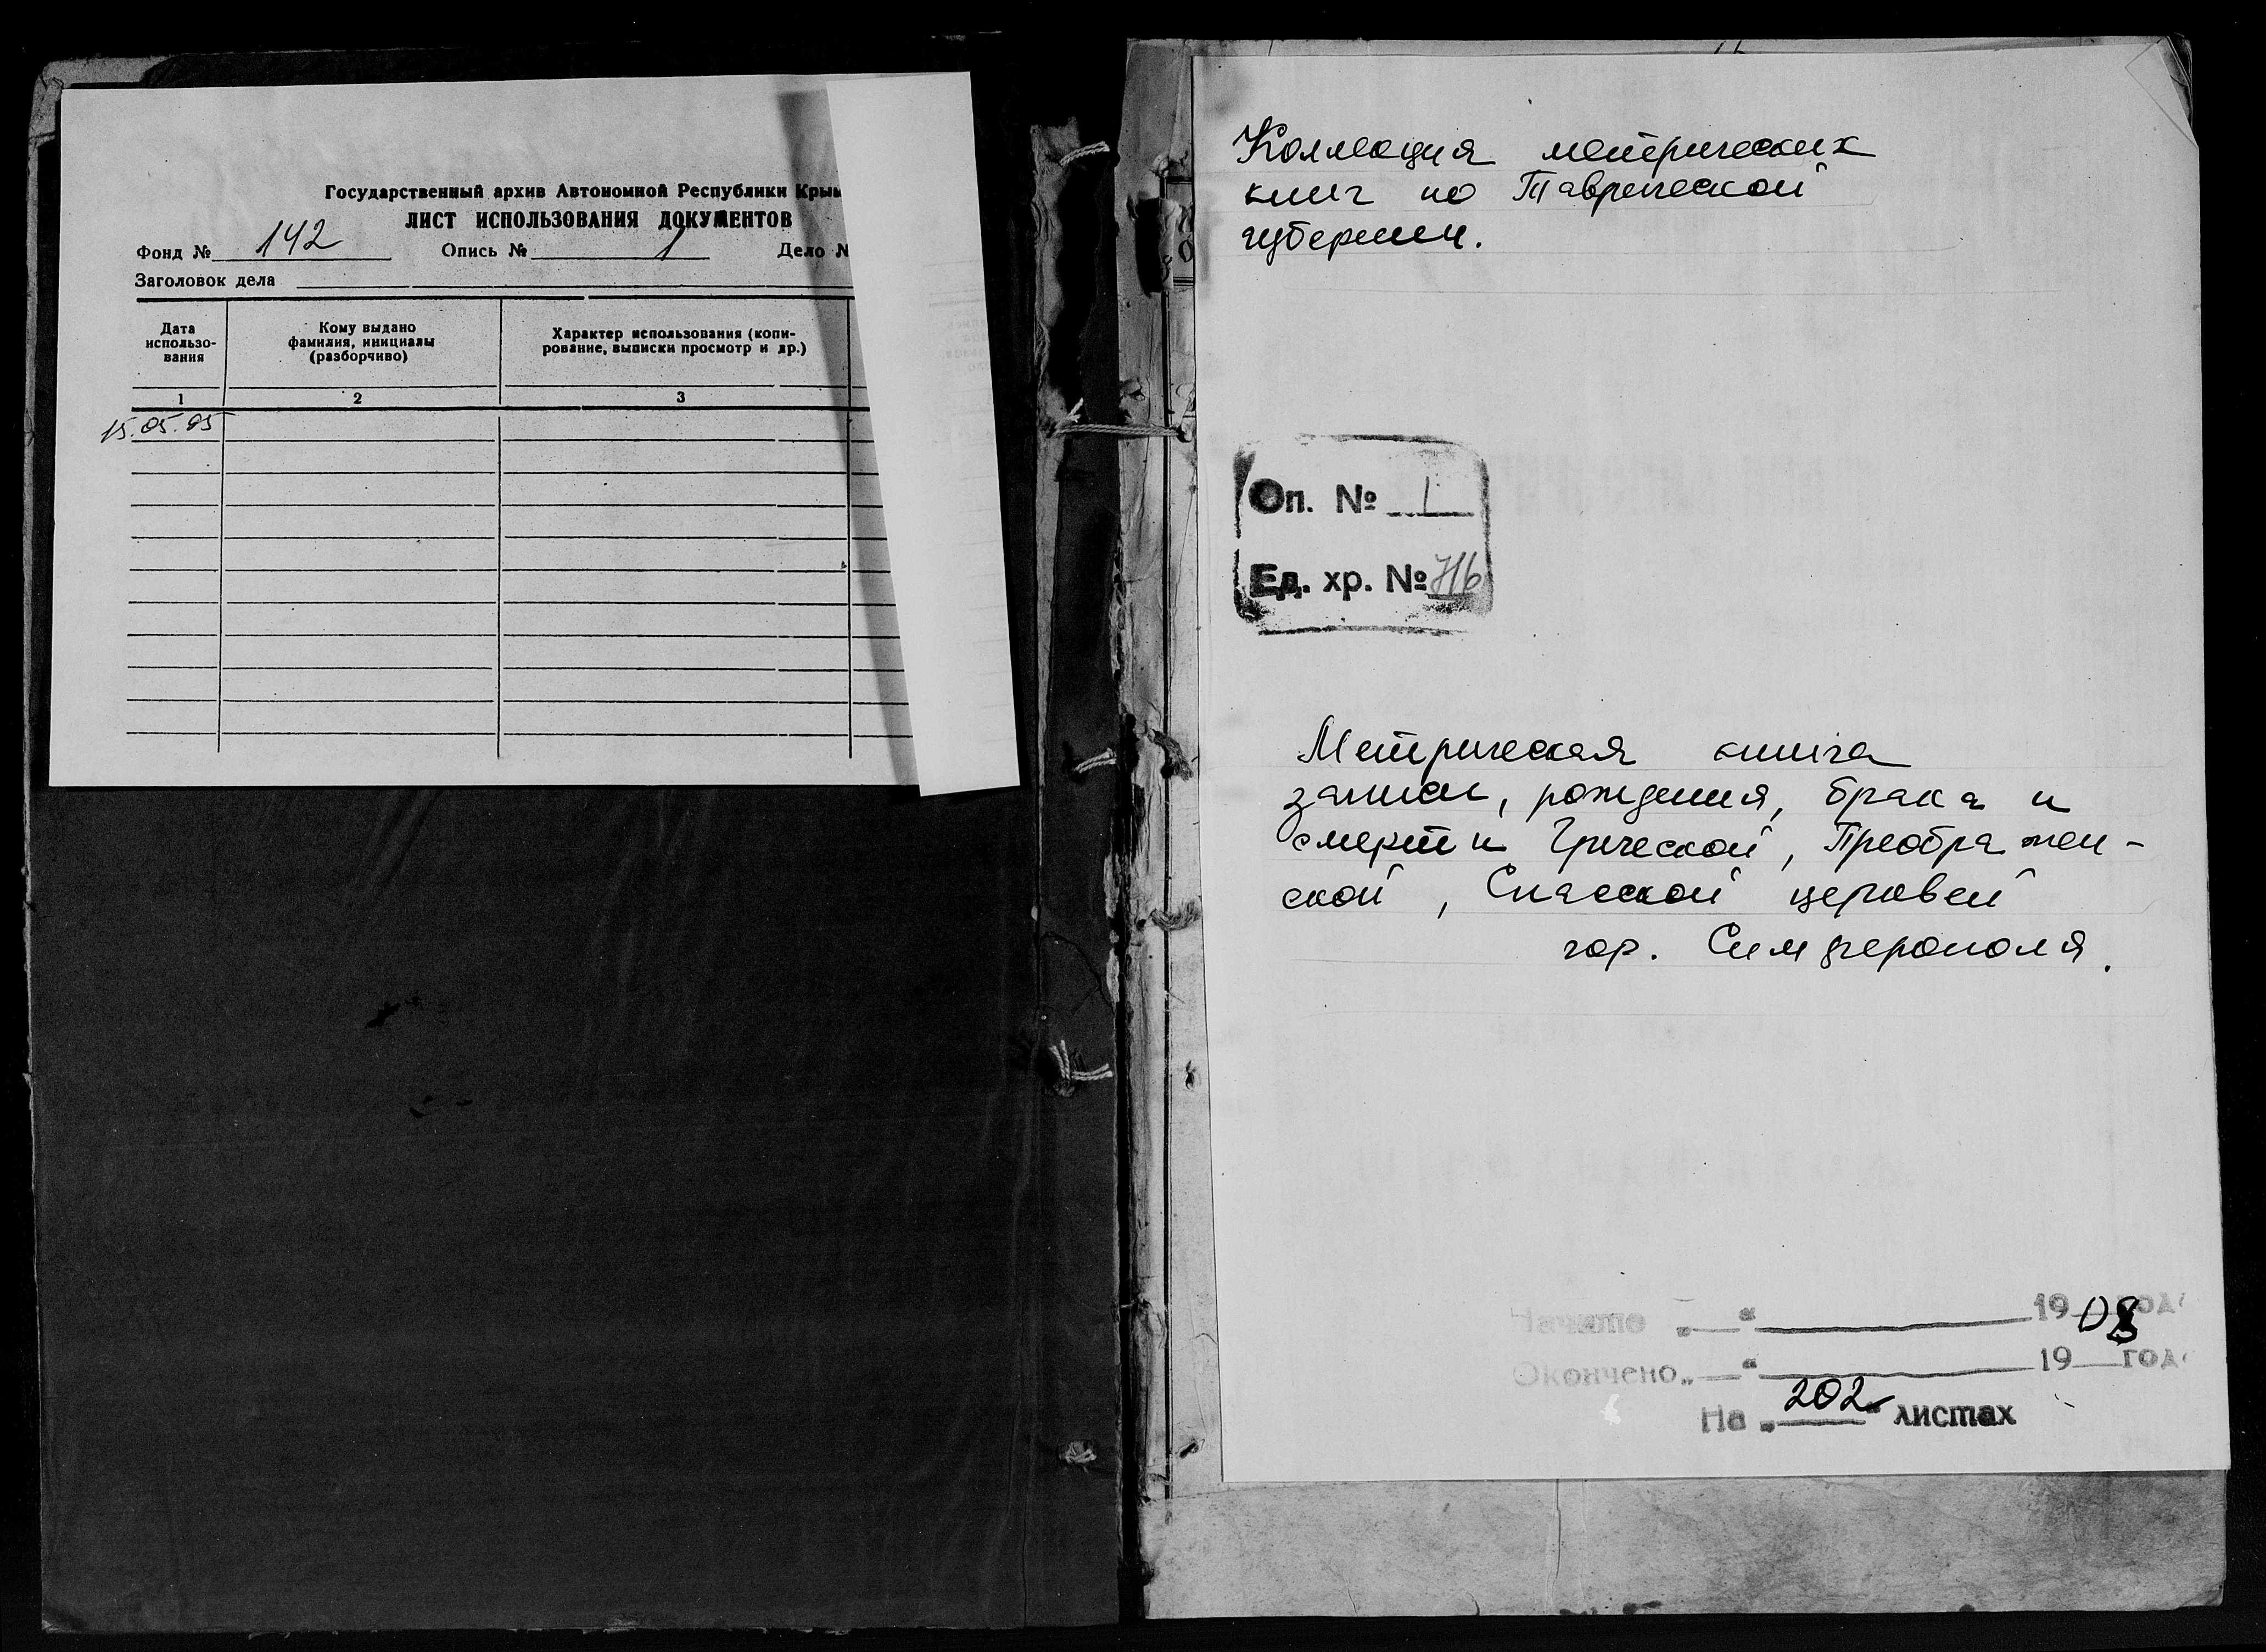 Государственный архив Автономной Республики Крым
ЛИСТ ИСПОЛЬЗОВАНИЯ ДОКУМЕНТОВ
Фонд № 142 Опись № 1 Дело №
Заголовок дела
Дата использо-вания
Кому выдано фамилия, инициалы (разборчиво)
Характер использования (копи-рование, выписки просмотр и др.)
1 2 3
15.05.95
Коллекция метрических
книг по Таврической
губернии.
Оп. № 1
Ед. хр. № 716
Метрическая книга
записи, рождения, брака и
смерти Греческой, Преображен-
ской, Спасской церквей
гор. Симферополя.
Начато „ “ 1908 года
Окончено „ “ 19 года
На „202“ листах